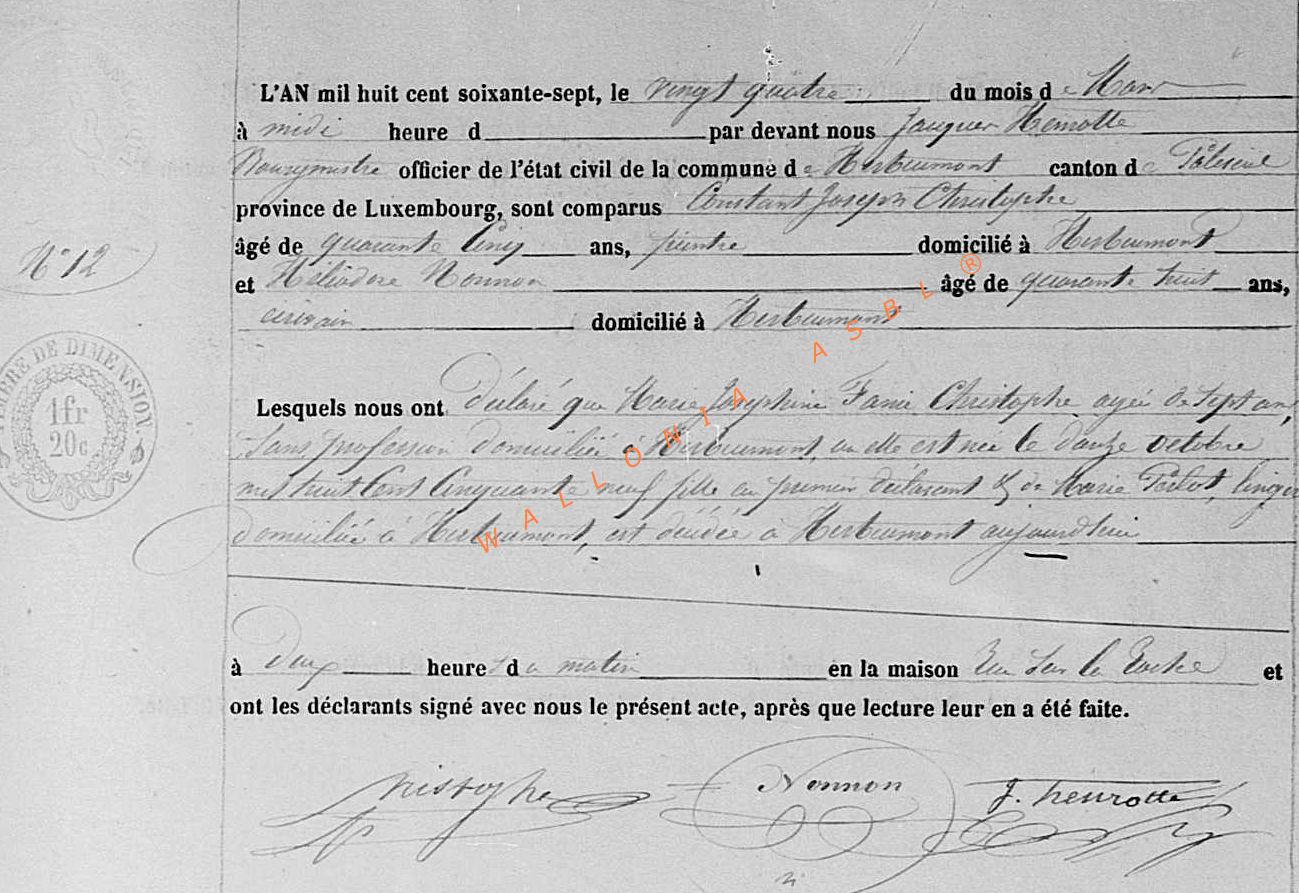 L'AN mil huit cent soixante-sept, le vingt quatre du mois de Mars
à midi heure d par devant nous Jacques Henrotte
Bourgmestre officier de l'état civil de la commune de Herbeumont canton de Paliseul
province de Luxembourg, sont comparus Constant Joseph Christophe
âgé de quarante cinq ans, peintre domicilié à Herbeumont
N° 12
et Héliodore Nonnon âgé de quarante huit ans,
domicilié à Herbeumont
TIMBRE DE DIMENSION
1 fr
20 c
Lesquels nous ont déclaré que Marie Joséphine Fanie Christophe agée de sept ans,
sans profession domiciliée à Herbeumont, où elle est née le douze octobre
mil huit cent cinquante neuf fille du premier déclarant & de Marie
domiciliée à Herbeumont, est décédée à Herbeumont aujourd'hui
à heures du matin en la maison sur la et
ont les déclarants signé avec nous le présent acte, après que lecture leur en a été faite.
Christophe Nonnon J. henrotte
WALLONIA ASBL ®